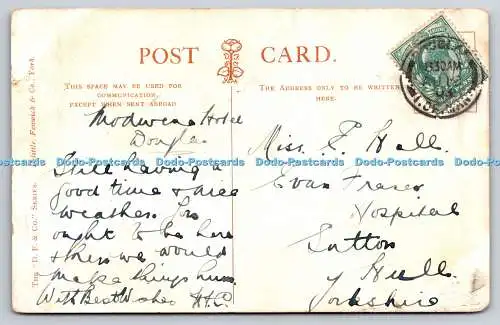 POST CARD.
THIS SPACE MAY BE USED FOR
COMMUNICATION,
EXCEPT WHEN SENT ABROAD
THE ADDRESS ONLY TO BE WRITTEN
HERE.
THE "D. F. & CO." SERIES.
Fenwick & Co.,
Hotel
Douglas
Still having a
good time & nice
weather. You
ought to be here
& then we would
make things hum.
With Best Wishes H.C.
Miss F. Hall
Evan Fraser
Hospital
Sutton
Hull
Yorkshire
DOUGLAS
Dodo-Postcards Dodo-Postcards Dodo-Postcards Dodo-Postcards Dodo-Postcards